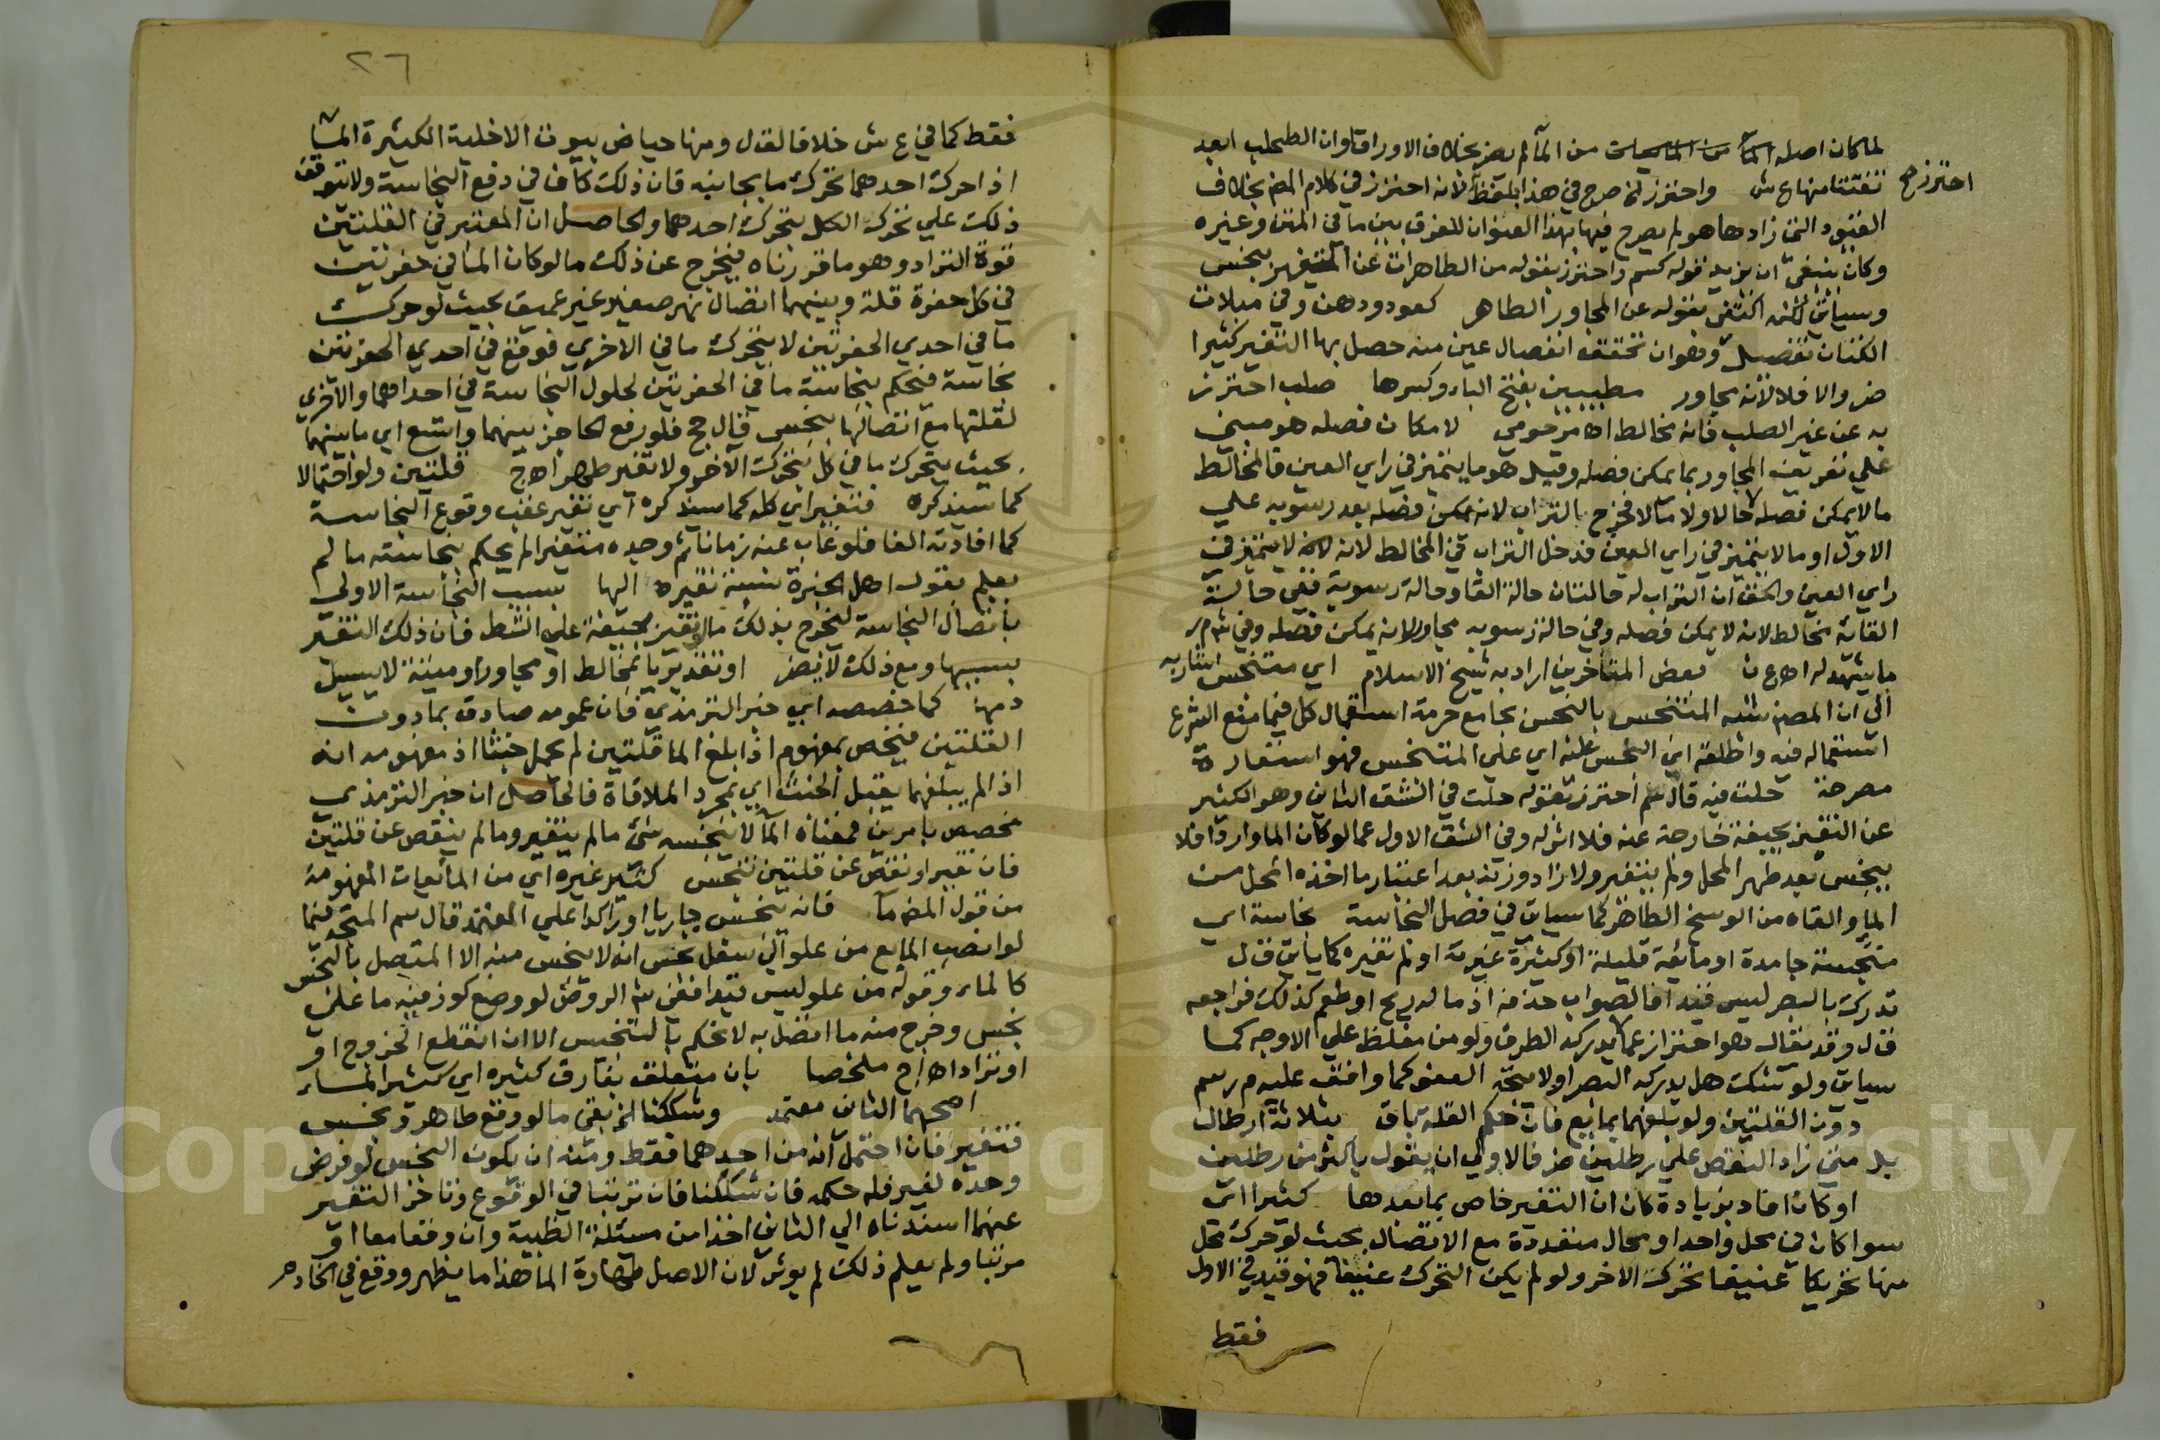 لما كان اصله الماء من المآ لم يضر بخلاف الاوراق وان الطحلب ابعد
تفتتا منها ع ش واحترز صرح في هذا بلفظ لانه احترز في كلام المص بخلاف
احترز
القيود التي زادها هو لم يصرح فيها بهذا العنوان للفرق بين ما في المتن وغيره
وكان ينبغي ان يزيد قوله كسم واحترز بقوله من الطاهرات عن المتغير بنجس
وسياتي لكنه اكتفى بقوله عن المجاور الطاهر كعود ودهن وفي مبلات
الكتان تفصيل وهو ان تحقق انفصال عين منه حصل بها التغير كثيرا
ضر والا فلا لانه مجاور مطيبين بفتح الياء وكسرها صلب احترز
به عن غير الصلب فانه مخالط اه مرحومي لا مكان فصله هو مبني
علي تعريف المجاور بما يمكن فصله وقيل هو ما يتميز في راي العين فالمخالط
ما لا يمكن فصله لا حالا ولا مآلا فخرج بالتراب لانه يمكن فصله بعد رسوبه علي
الاول او ما لا يتميز في راي العين فدخل التراب في المخالط لانه لا يتميز في
راي العين والحق ان التراب له حالتان حالة القا وحالة رسوبه ففي حالة
القائه مخالط لانه لا يمكن فصله وفي حالة رسوبه مجاور لانه يمكن فصله وفي ش م ر
ما يشهد له اه ع ش بعض المتاخرين اراد به شيخ الاسلام اي متنجس اشار به
الى ان المصنف شبه المتنجس بالنجس بجامع حرمة استعمال كل فيما منع الشرع
استعماله فيه واطلق اي النجس عليه اي على المتنجس فهو استعارة
مصرحة حلت فيه قال سم احترز بقوله حلت في الشق الثاني وهو الكثير
عن التغير بجيفة خارجة عنه فلا اثر له وفي الشق الاول عما لو كان الما واردا فلا
ينجس بعد طهر المحل ولم يتغير ولا زاد وزنه بعد اعتبار ما اخذه المحل من
الماء والقاه من الوسخ الطاهر كما سياتي في فصل النجاسة نجاسة اي
متنجسة جامدة او مائعة قليلة او كثيرة غيرته او لم تغيره كما ياتي قال
تدرك بالبصر ليس قيدا فالصواب حذفه اذ ما له ريح او طعم كذلك فراجعه
قال وقد يقال هو احتراز عما لا يدركه الطرف ولو من مغلظ علي الاوجه كما
سياتي ولو شك هل يدركه البصر اولا سحة العفو كما وافق عليه م ر سم
دون القلتين ولو بلغهما بمائع فان حكم القلة باق بثلاثة ارطال
بل متى زاد النقص علي رطلين ضر فالاولى ان يقول باكثر من رطلين
او كان افاد بزيادة كان ان التغير خاص بما بعدها كثيرا اي
سوا كان في محل واحد او محال متعددة مع الاتصال بحيث لو حرك محل
منها تحريكا عنيفا تحرك الاخر ولو لم يكن التحرك عنيفا فهو قيد في الاول
فقط
٢٦
فقط كما في ع ش خلافا لقول ومنها حياض بيوت الاخلية الكثيرة الما
اذا حرك احدهما تحرك ما بجانبه فان ذلك كاف في دفع النجاسة ولا يتوقف
ذلك علي تحرك الكل بتحرك احدهما والحاصل ان المعتبر في القلتين
قوة التراد وهو ما قررناه فيخرج عن ذلك ما لو كان الما في حفرتين
في كل حفرة قلة وبينهما اتصال نهر صغير غير عميق بحيث لو حرك
ما في احدي الحفرتين لا يتحرك ما في الاخرى فوقع في احدي الحفرتين
نجاسة فيحكم بنجاسة ما في الحفرتين لحلول النجاسة في احداهما والاخرى
لقلتها مع اتصالها بنجس قال حج فلو رفع الحاجز بينهما واتسع اي ما بينهما
بحيث يتحرك ما في كل بتحرك الآخر ولا تغير طهر اه ج قلتين ولو احتمالا
كما سيذكره فتغير اي كله كما سيذكره اي تغير عقب وقوع النجاسة
كما افادته الفا فلو غاب عنه زمانا ثم وجده متغيرا لم يحكم بنجاسته ما لم
يعلم بقول اهل الخبرة نسبة تغيره اليها بسبب النجاسة الاولى
باتصال النجاسة ليخرج بذلك ما لو تغير بجيفة علي الشط فان ذلك التغير
بسببها ومع ذلك لا يضر او تقديريا بمخالط او مجاور او ميتة لا يسيل
دمها كما خصصه اي خبر الترمذي فان عمومه صادق بما دون
القلتين فيخص بمفهوم اذا بلغ الما قلتين لم يحمل خبثا اذ مفهومه انه
اذا لم يبلغهما يقبل الخبث اي بمجرد الملاقاة فالحاصل ان خبر الترمذي
مخصص بامرين فمعناه المآ لا ينجسه شئ ما لم يتغير وما لم ينقص عن قلتين
فان تغير او نقص عن قلتين تنجس كثير غيره اي من المائعات المفهومة
من قول المص مآ فانه ينجس جاريا او راكدا علي المعتمد قال سم المتجه فيما
لو انصب المايع من علو الى سفل نجس انه لا ينجس منه الا المتصل بالنجس
كالماء وقوله من علو ليس قيدا ففي ش الروض لو وضع كوز فيه ما على
نجس وخرج منه ما اتصل به لا نحكم بالتنجيس الا ان انقطع الخروج او
او تراد اه اج ملخصا بان متعلق بفارق كثيره اي كثير الماء
اصحهما الثاني معتمد وشككنا الخ بقي ما لو وقع طاهر ونجس
فتغير فان احتمل انه من احدهما فقط ومثله ان يكون النجس لو فرض
وحده لغير فله حكمه فان شككنا فان ترتبا في الوقوع وتاخر التغير
عنهما اسندناه الى الثاني اخذا من مسئلة الظبية وان وقعا معا او
مرتبا ولم يعلم ذلك لم يوثر لان الاصل طهارة الما هذا ما يظهر ووقع في الخادم
Copyright © King Saud University